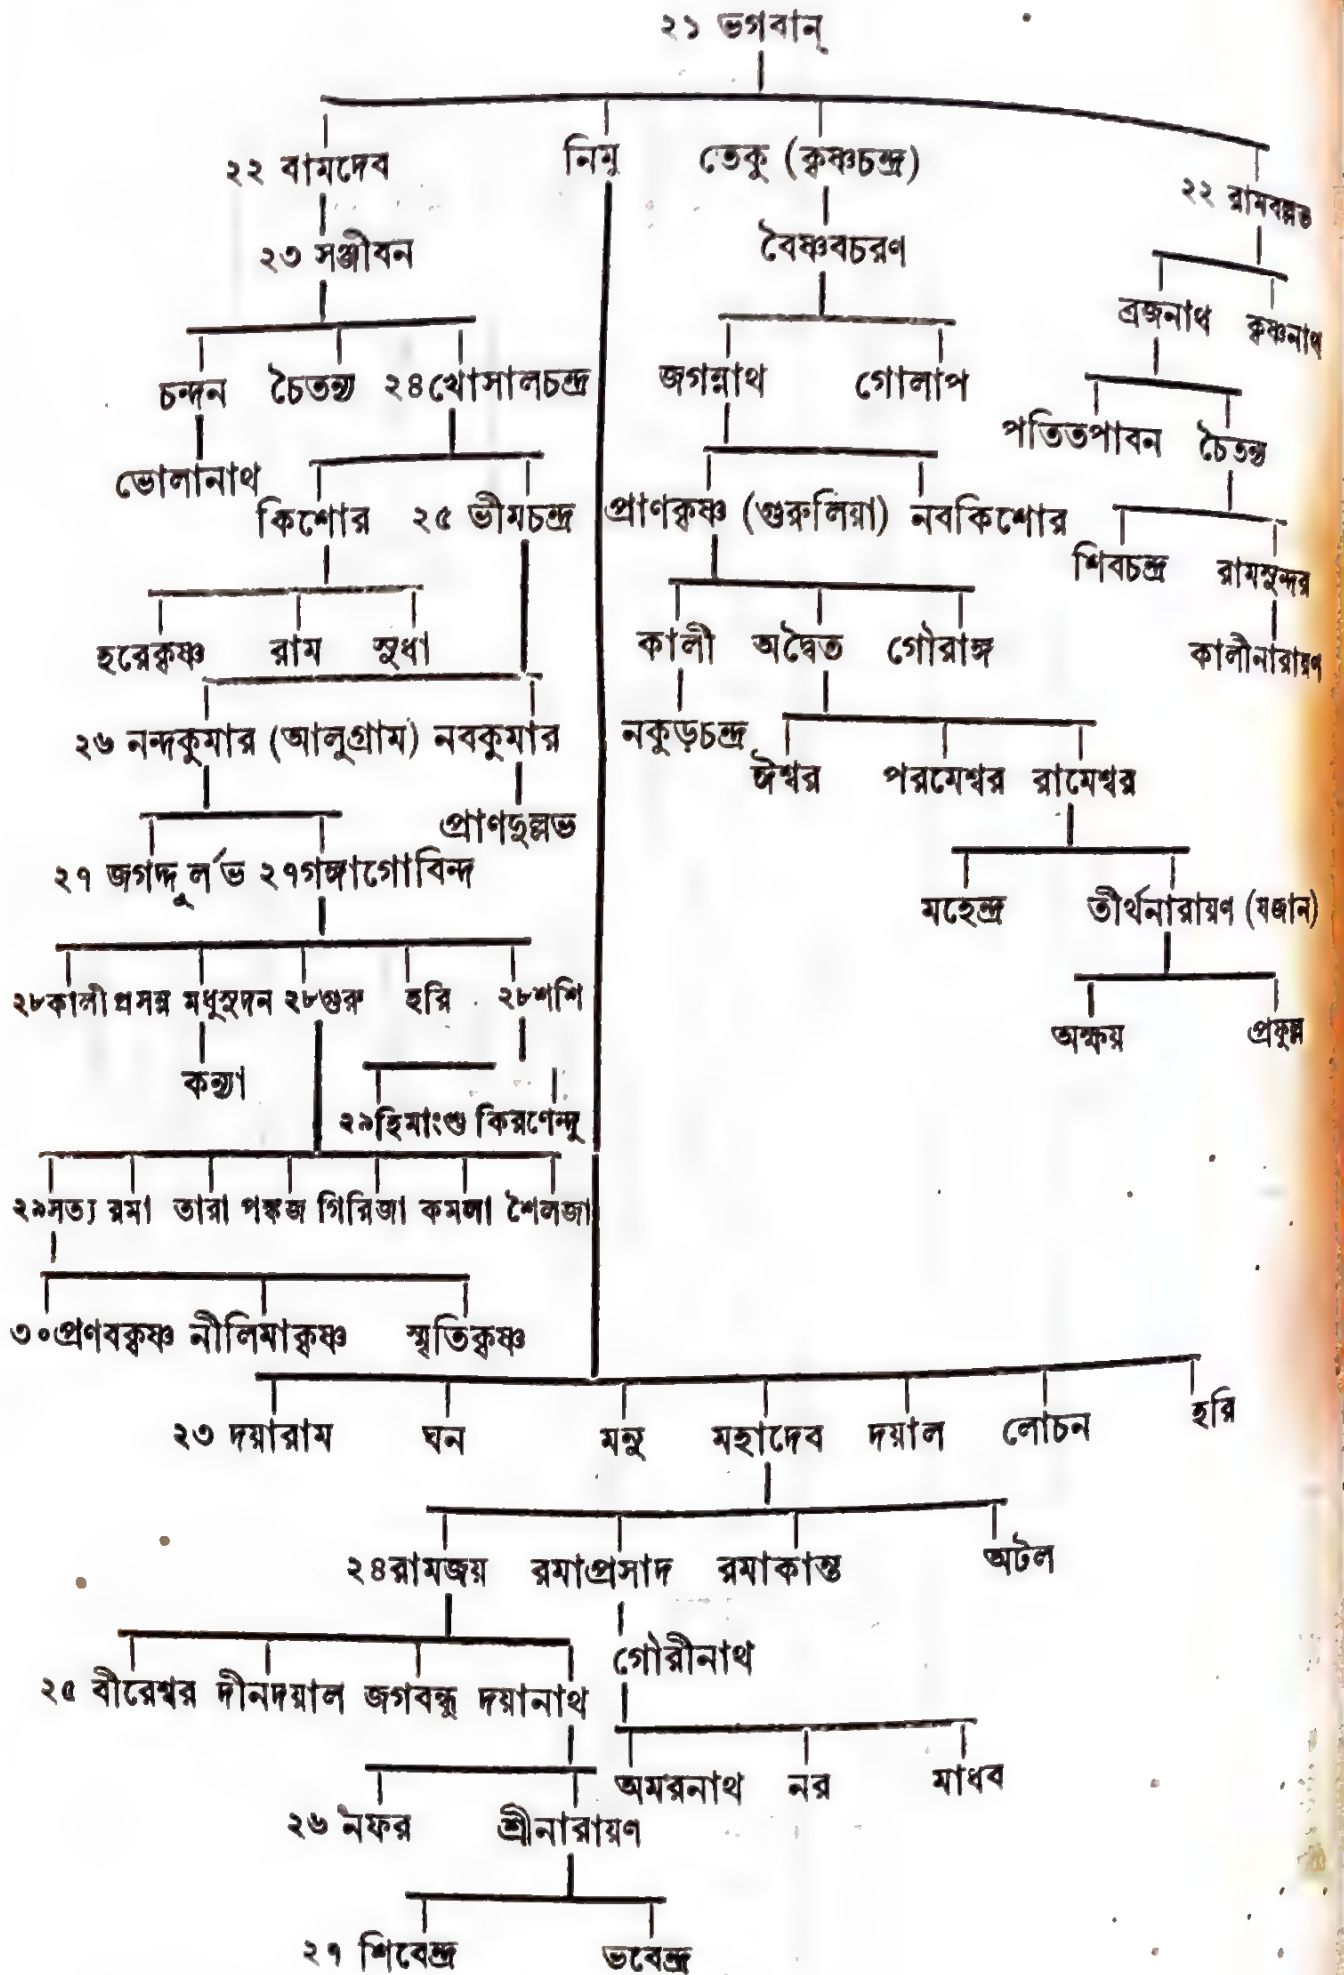 ২১ ভগবান্
২২ বামদেব নিমু তেকু (কৃষ্ণচন্দ্র) ২২ রামবল্লভ
২৩ সঞ্জীবন বৈষ্ণবচরণ
ব্রজনাথ কৃষ্ণনাথ
চন্দন চৈতন্য ২৪খোসালচন্দ্র জগন্নাথ গোলাপ
পতিতপাবন চৈতন্য
ভোলানাথ
কিশোর ২৫ ভীমচন্দ্র প্রাণকৃষ্ণ (গুরুলিয়া) নবকিশোর
শিবচন্দ্র রামসুন্দর
হরেকৃষ্ণ রাম সুধা কালী অদ্বৈত গৌরাঙ্গ কালীনারায়ণ
২৬ নন্দকুমার (আলুগ্রাম) নবকুমার নকুড়চন্দ্র
ঈশ্বর পরমেশ্বর রামেশ্বর
প্রাণদুল্লভ
২৭ জগদ্দুর্লভ ২৭গঙ্গাগোবিন্দ
মহেন্দ্র তীর্থনারায়ণ (যজান)
২৮কালীপ্রসন্ন মধুসূদন ২৮গুরু হরি ২৮শশি
অক্ষয় প্রফুল্ল
কন্যা
২৯হিমাংশু কিরণেন্দু
২৯সত্য রমা তারা পঙ্কজ গিরিজা কমলা শৈলজা
৩০প্রণবকৃষ্ণ নীলিমাকৃষ্ণ স্মৃতিকৃষ্ণ
২৩ দয়ারাম ঘন মনু মহাদেব দয়াল লোচন হরি
২৪রামজয় রমাপ্রসাদ রমাকান্ত অটল
গৌরীনাথ
২৫ বীরেশ্বর দীনদয়াল জগবন্ধু দয়ানাথ
অমরনাথ নর মাধব
২৬ নফর শ্রীনারায়ণ
২৭ শিবেন্দ্র ভবেন্দ্র